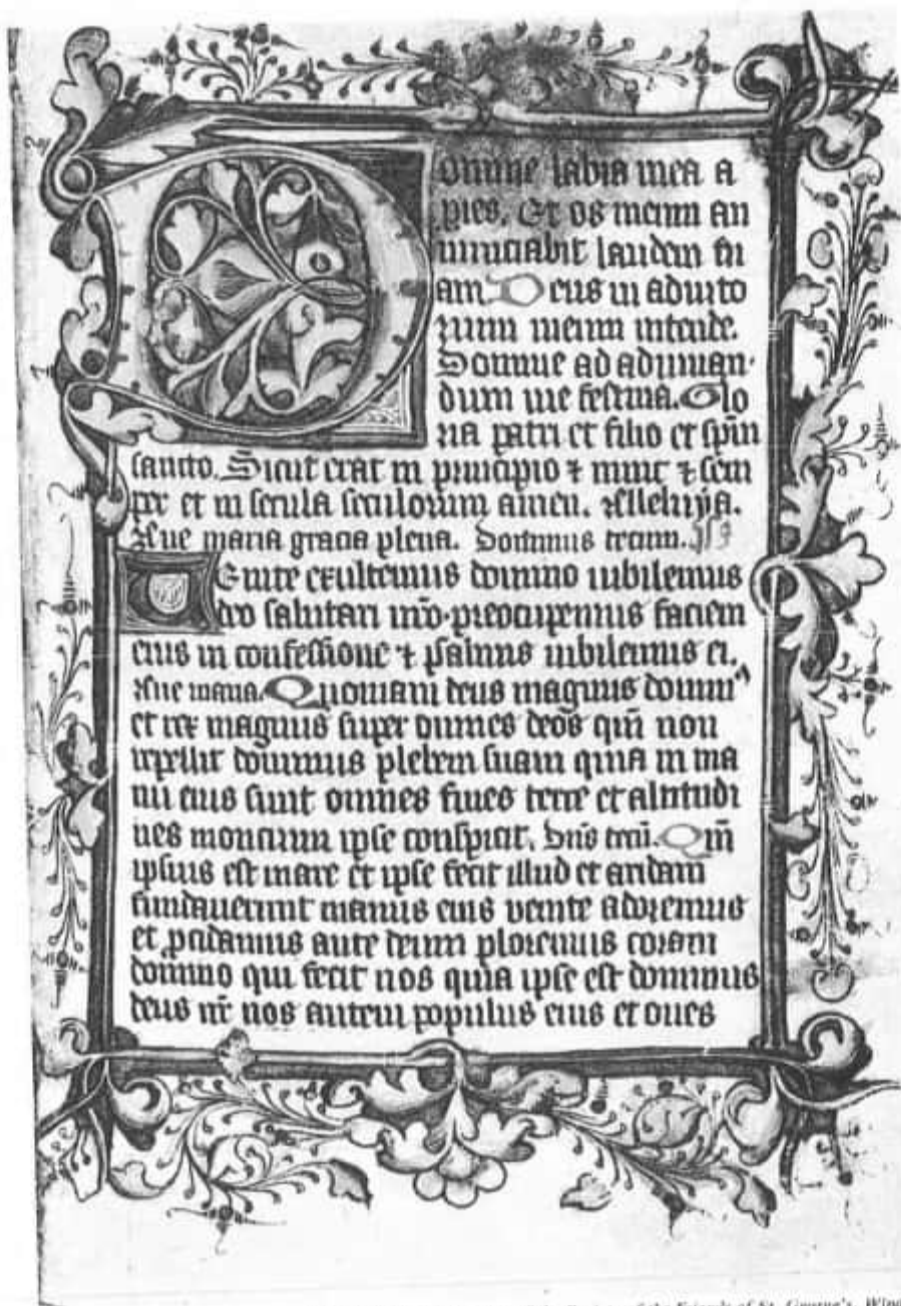 Domine labia mea a
pies. Et os meum an
nunciabit laudem tu
am. Deus in adiuto
rium meum intende.
Domine ad adiuuan
dum me festina. Glo
ria patri et filio et spūi
sancto. Sicut erat in principio ⁊ nunc ⁊ sem
per et in secula seculorum amen. Alleluya.
Aue maria gracia plena. Dominus tecum.
Uenite exultemus domino iubilemus
deo salutari nr̄o. preocupemus faciem
eius in confessione ⁊ psalmis iubilemus ei.
Aue maria. Quoniam deus magnus domin⁹
et rex magnus super omnes deos qm̄ non
repellit dominus plebem suam quia in ma
nu eius sunt omnes fines terre et altitudi
nes moncium ipse conspicit. Dn̄s tecū. Qm̄
ipsius est mare et ipse fecit illud et aridam
fundauerunt manus eius venite adoremus
et ꝓcidamus ante deum ploremus coram
domino qui fecit nos quia ipse est dominus
deus nr̄ nos autem populus eius et oues
of the Friends of St. George's,